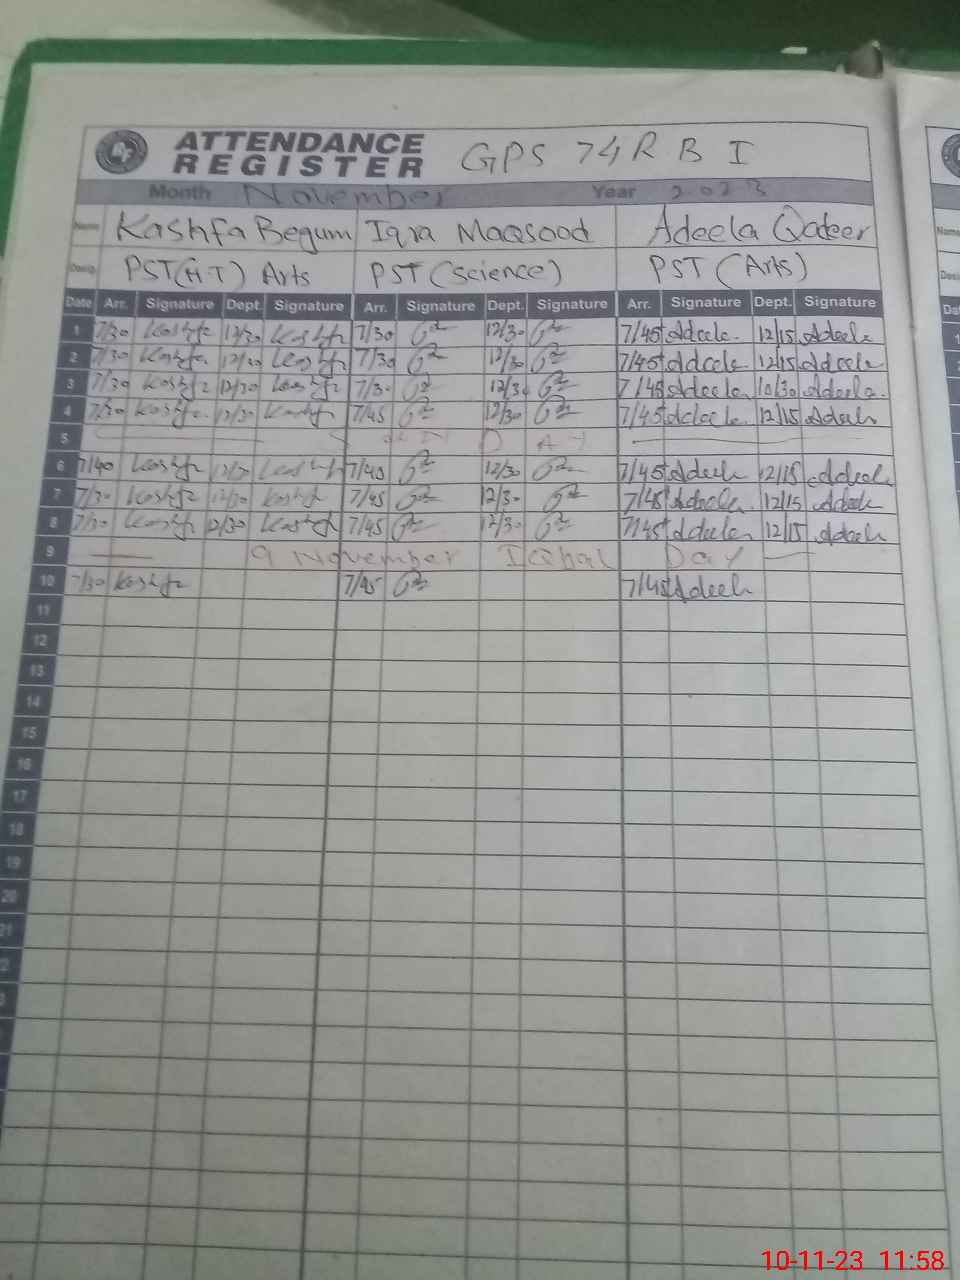 ATTENDANCE REGISTER GPS 74 R B I
Month November Year 2023
Name Kashfa Begum Iqra Maqsood Adeela Qadeer
Desig. PST (H-T) Arts PST (Science) PST (Arts)
Date Arr. Signature Dept. Signature Arr. Signature Dept. Signature Arr. Signature Dept. Signature
1 7/30 Kashfa 12/30 Kashfa 7/30 12/30 7/45 Adeela 12/15 Adeela
2 7/30 Kashfa 12/30 Kashfa 7/30 12/30 7/45 Adeela 12/15 Adeela
3 7/30 Kashfa 12/30 Kashfa 7/30 12/30 7/45 Adeela 10/30 Adeela
4 7/30 Kashfa 12/30 Kashfa 7/45 12/30 7/45 Adeela 12/15 Adeela
5 SUN DAY
6 7/40 Kashfa 12/30 Kashfa 7/40 12/30 7/45 Adeela 12/15 Adeela
7 7/30 Kashfa 12/30 Kashfa 7/45 12/30 7/45 Adeela 12/15 Adeela
8 7/30 Kashfa 12/30 Kashfa 7/45 12/30 7/45 Adeela 12/15 Adeela
9 9 November Iqbal Day
10 7/30 Kashfa 7/45 7/45 Adeela
11
12
13
14
15
16
17
18
19
20
21
10-11-23 11:58